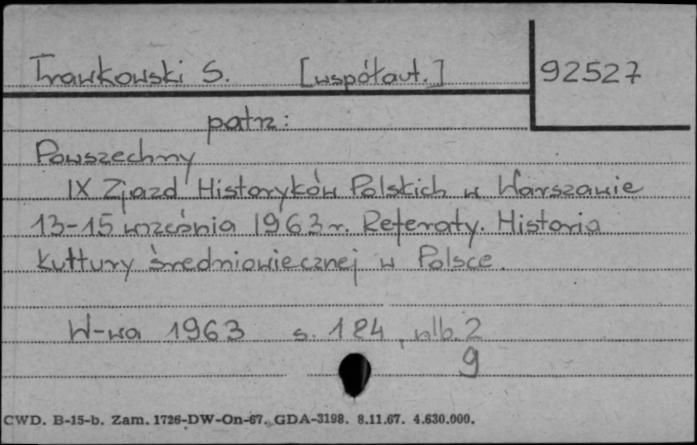 Trawkowski S. [współaut.] 92527
patrz:
Powszechny
IX Zjazd Historyków Polskich w Warszawie
13-15 września 1963 r. Referaty. Historia
kultury średniowiecznej w Polsce.
W-wa 1963 s. 184, nlb. 2
9
CWD. B-15-b. Zam. 1726-DW-On-67. GDA-3198. 8.11.67. 4.630.000.